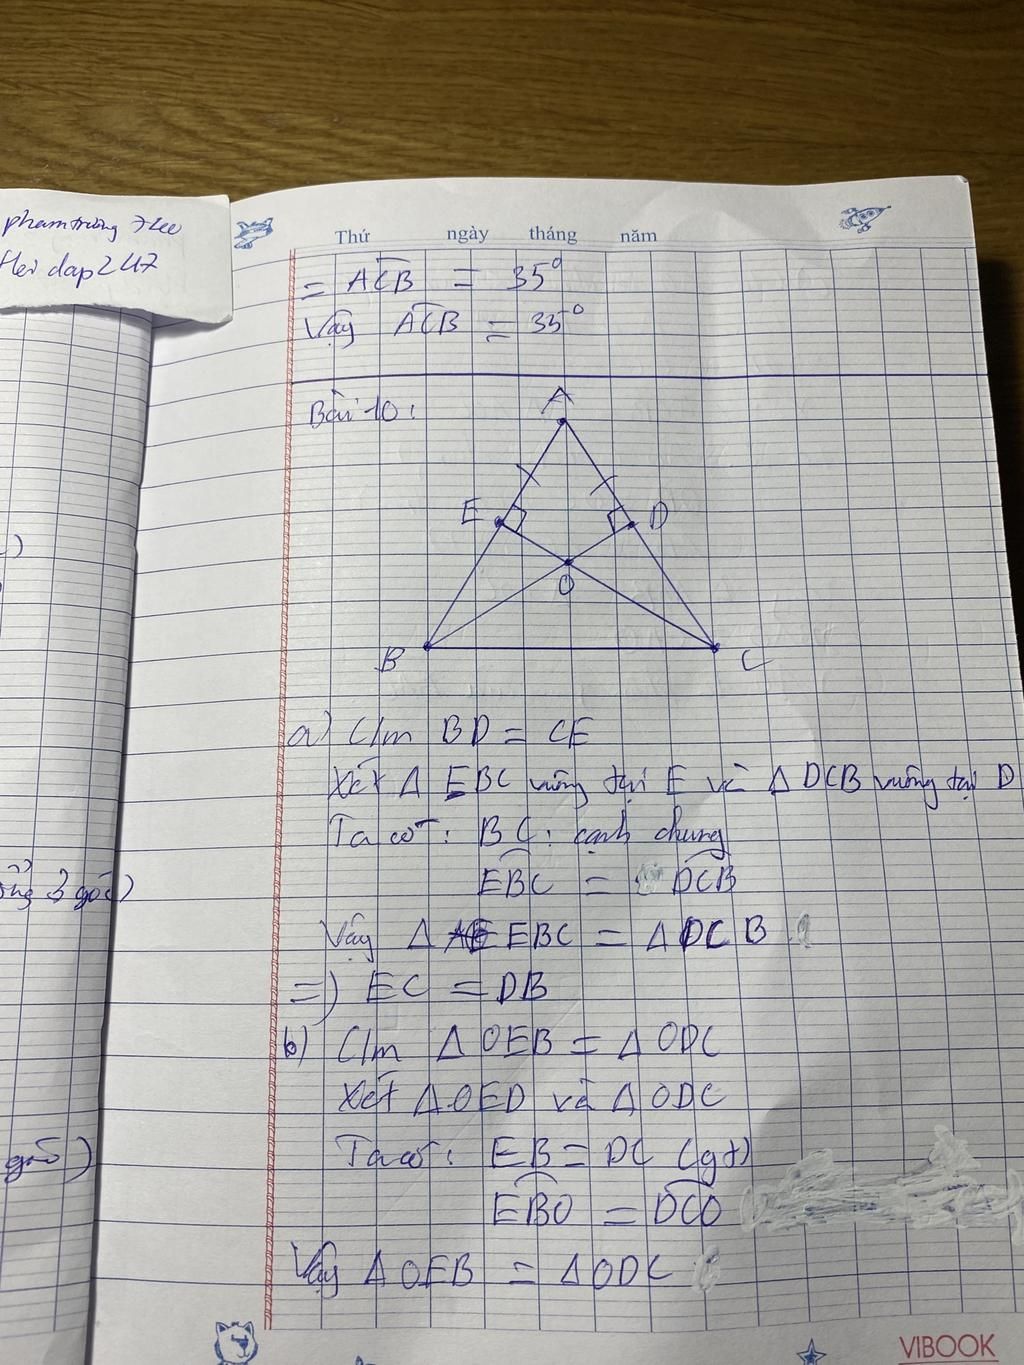 phamtrường
Hoi dap247
Thứ ngày tháng năm
= ACB = 35°
Vậy ACB = 35°
Bài 10:
A
E D
O
B C
a) C/m BD = CE
Xét Δ EBC vuông tại E và Δ DCB vuông tại D
Ta có: BC: cạnh chung
EBC = DCB
Vậy Δ EBC = Δ DCB
=) EC = DB
b) C/m Δ OEB = Δ ODC
Xét Δ OED và Δ ODC
Ta có: EB = DC (gt)
EBO = DCO
Vậy Δ OEB = Δ ODC
3 góc)
góc)
VIBOOK